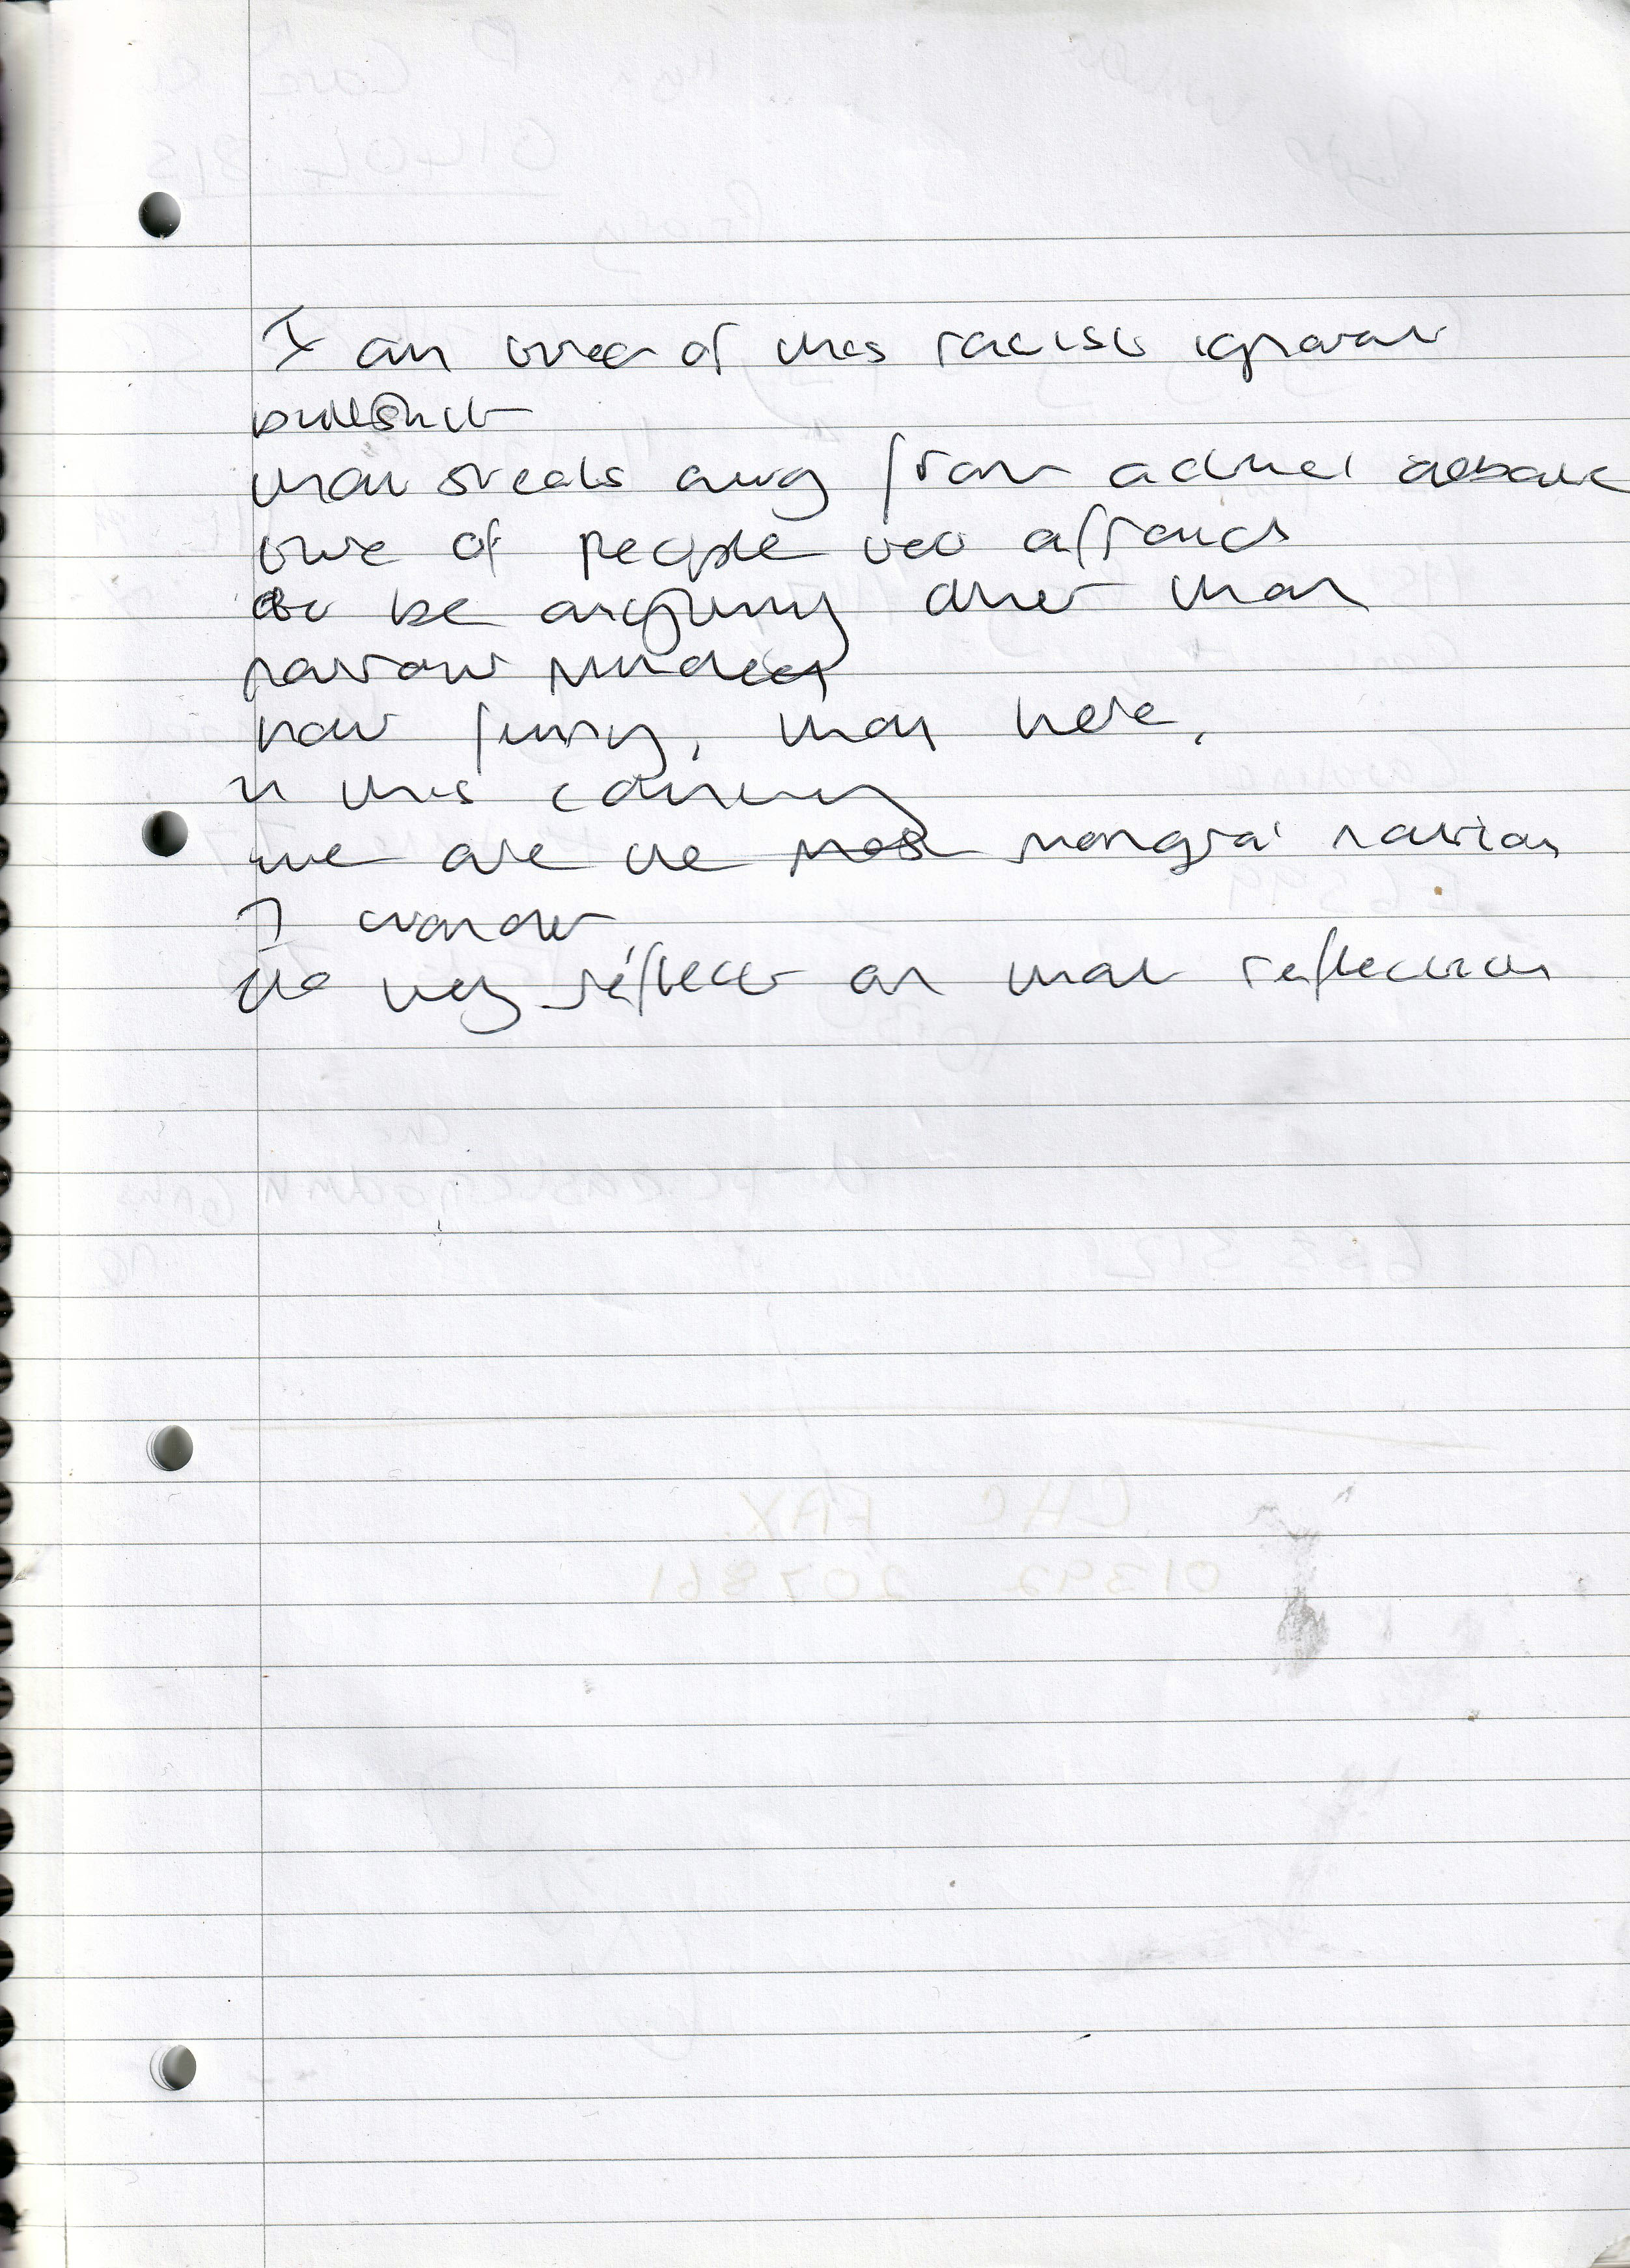 I am tired of this racist ignorant
bullshit
that steals away from actual debate
tired of people too affraid
to be anything other than
narrow minded
how funny, that here,
in this country
we are the most mongral nation
I wonder
do they reflect on that reflection